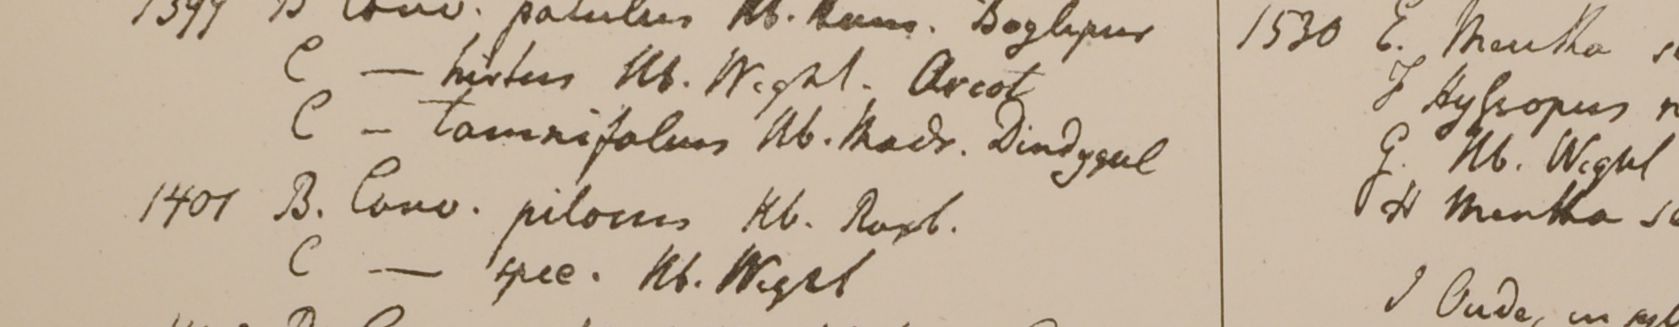 1399 B Conv. patulus Hb. Ham. Boglipur
C — hirtus Hb. Wight. Arcot
C – tamnifolius Hb. Madr. Dindygul
1401 B. Conv. pilosus Hb. Roxb.
C — spec. Hb. Wight
1530 E. Mentha
F Hyssopus
G. Hb. Wight
H Mentha
I Oude, in